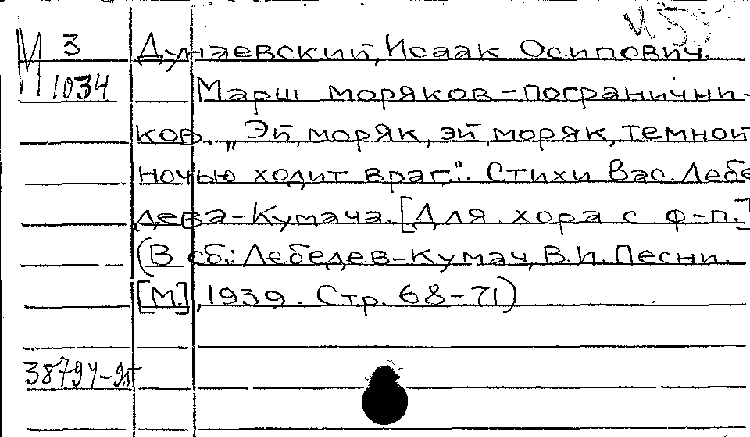 М 3
1034
Дунаевский, Исаак Осипович.
Марш моряков-погранични-
ков. „Эй, моряк, эй, моряк, темной
ночью ходит враг". Стихи Вас. Лебе-
дева-Кумача. [Для хора с ф-п.]
(В сб.: Лебедев-Кумач, В.И. Песни.
[М.], 1939. Стр. 68-71)